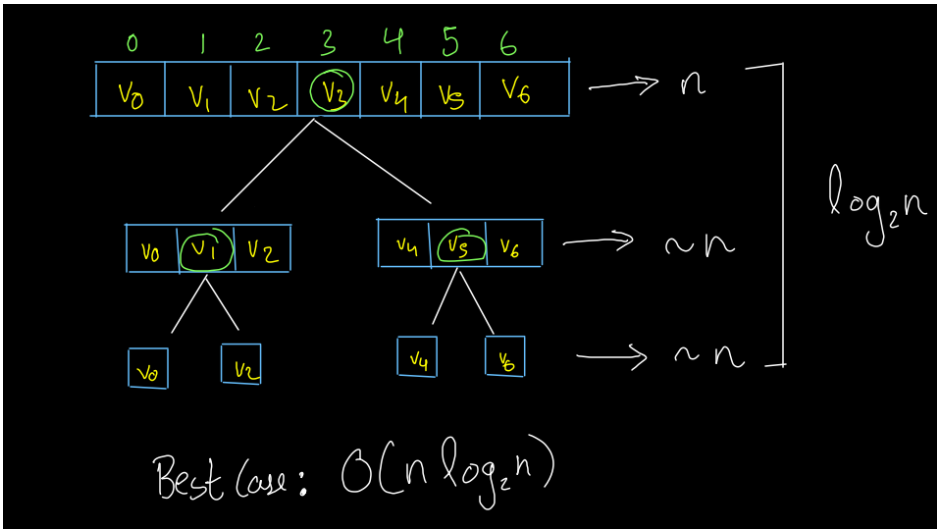 0 1 2 3 4 5 6
V0 V1 V2 V3 V4 V5 V6 → n
log₂n
V0 V1 V2 V4 V5 V6 → ~n
V0 V2 V4 V6 → ~n
Best Case: O(n log₂n)